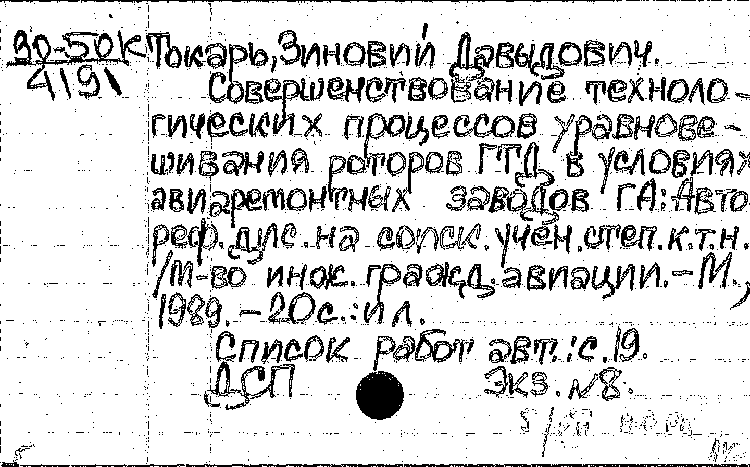 30-50К Токарь, Зиновий Давыдович.
4191
Совершенствование техноло-
гических процессов уравнове-
шивания роторов ГТД в условиях
авиаремонтных заводов ГА: Авто-
реф. дис. на соиск. учен. степ. к.т.н.
/М-во инож. гражд. авиации. - М.,
1989. - 20 с.: ил.
Список работ авт.: с. 19.
ДСП Экз. №8.